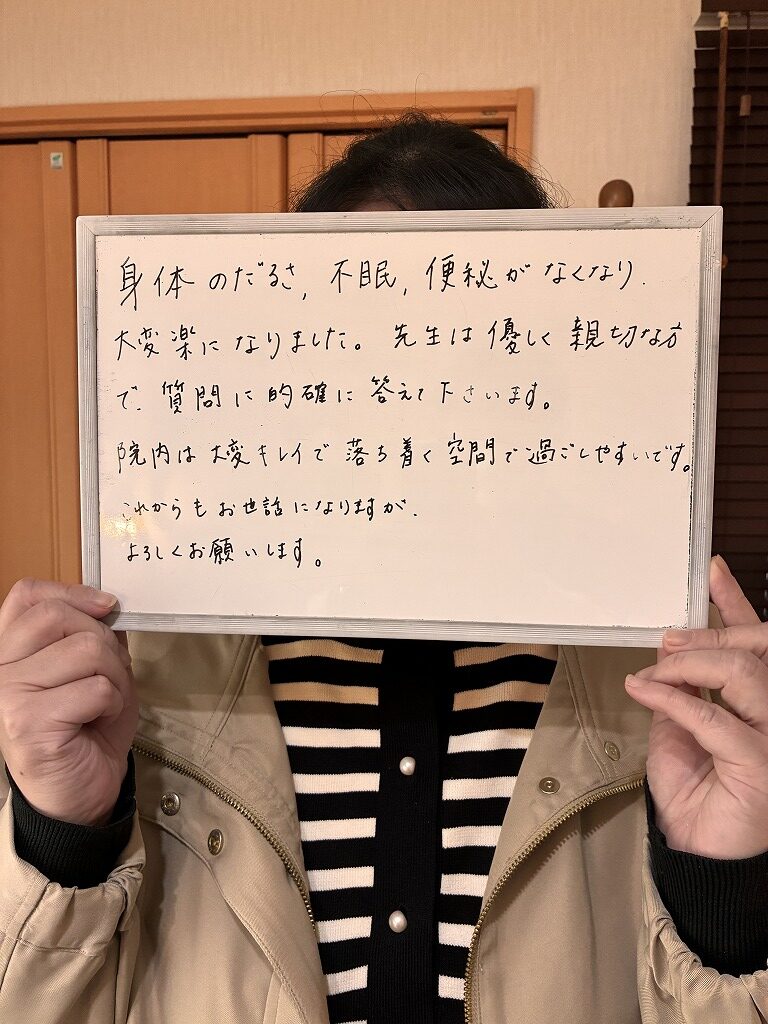 身体のだるさ, 不眠, 便秘がなくなり.
大変楽になりました。先生は優しく親切な方
で、質問に的確に答えて下さいます。
院内は大変キレイで落ち着く空間で過ごしやすいです。
これからもお世話になりますが、
よろしくお願いします。